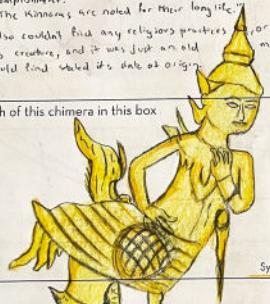 "The Kinnaras are noted for their long life."
also couldn't find any religious practices or
creature, and it was just an old
ould find stated its date of origin.
h of this chimera in this box
Sy